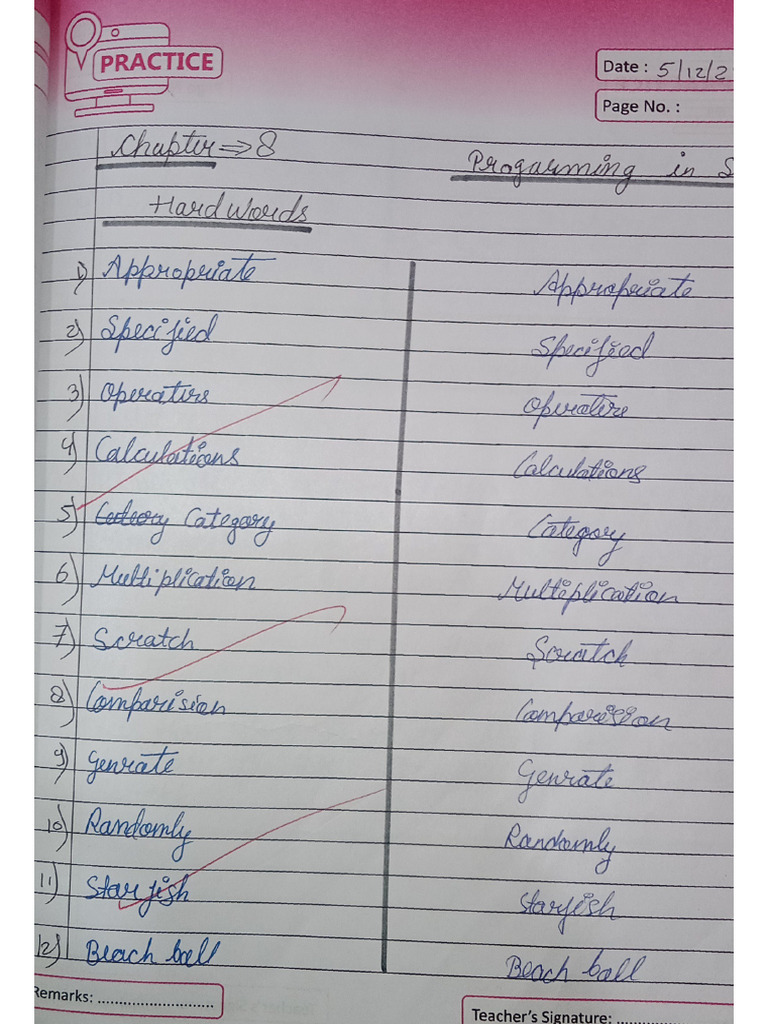 PRACTICE
Date : 5/12/2
Page No. :
Chapter ⇒ 8 Progarming in S
Hard Words
1) Appropriate Appropriate
2) Specified Specified
3) Operatirs Operatire
4) Calculations Calculations
5) Category Category
6) Multiplication Multiplication
7) Scratch Scratch
8) Comparision Comparision
9) Genrate Genrate
10) Randomly Randomly
11) Starfish Starfish
12) Beach ball Beach ball
Remarks: ............................
Teacher's Signature: ................